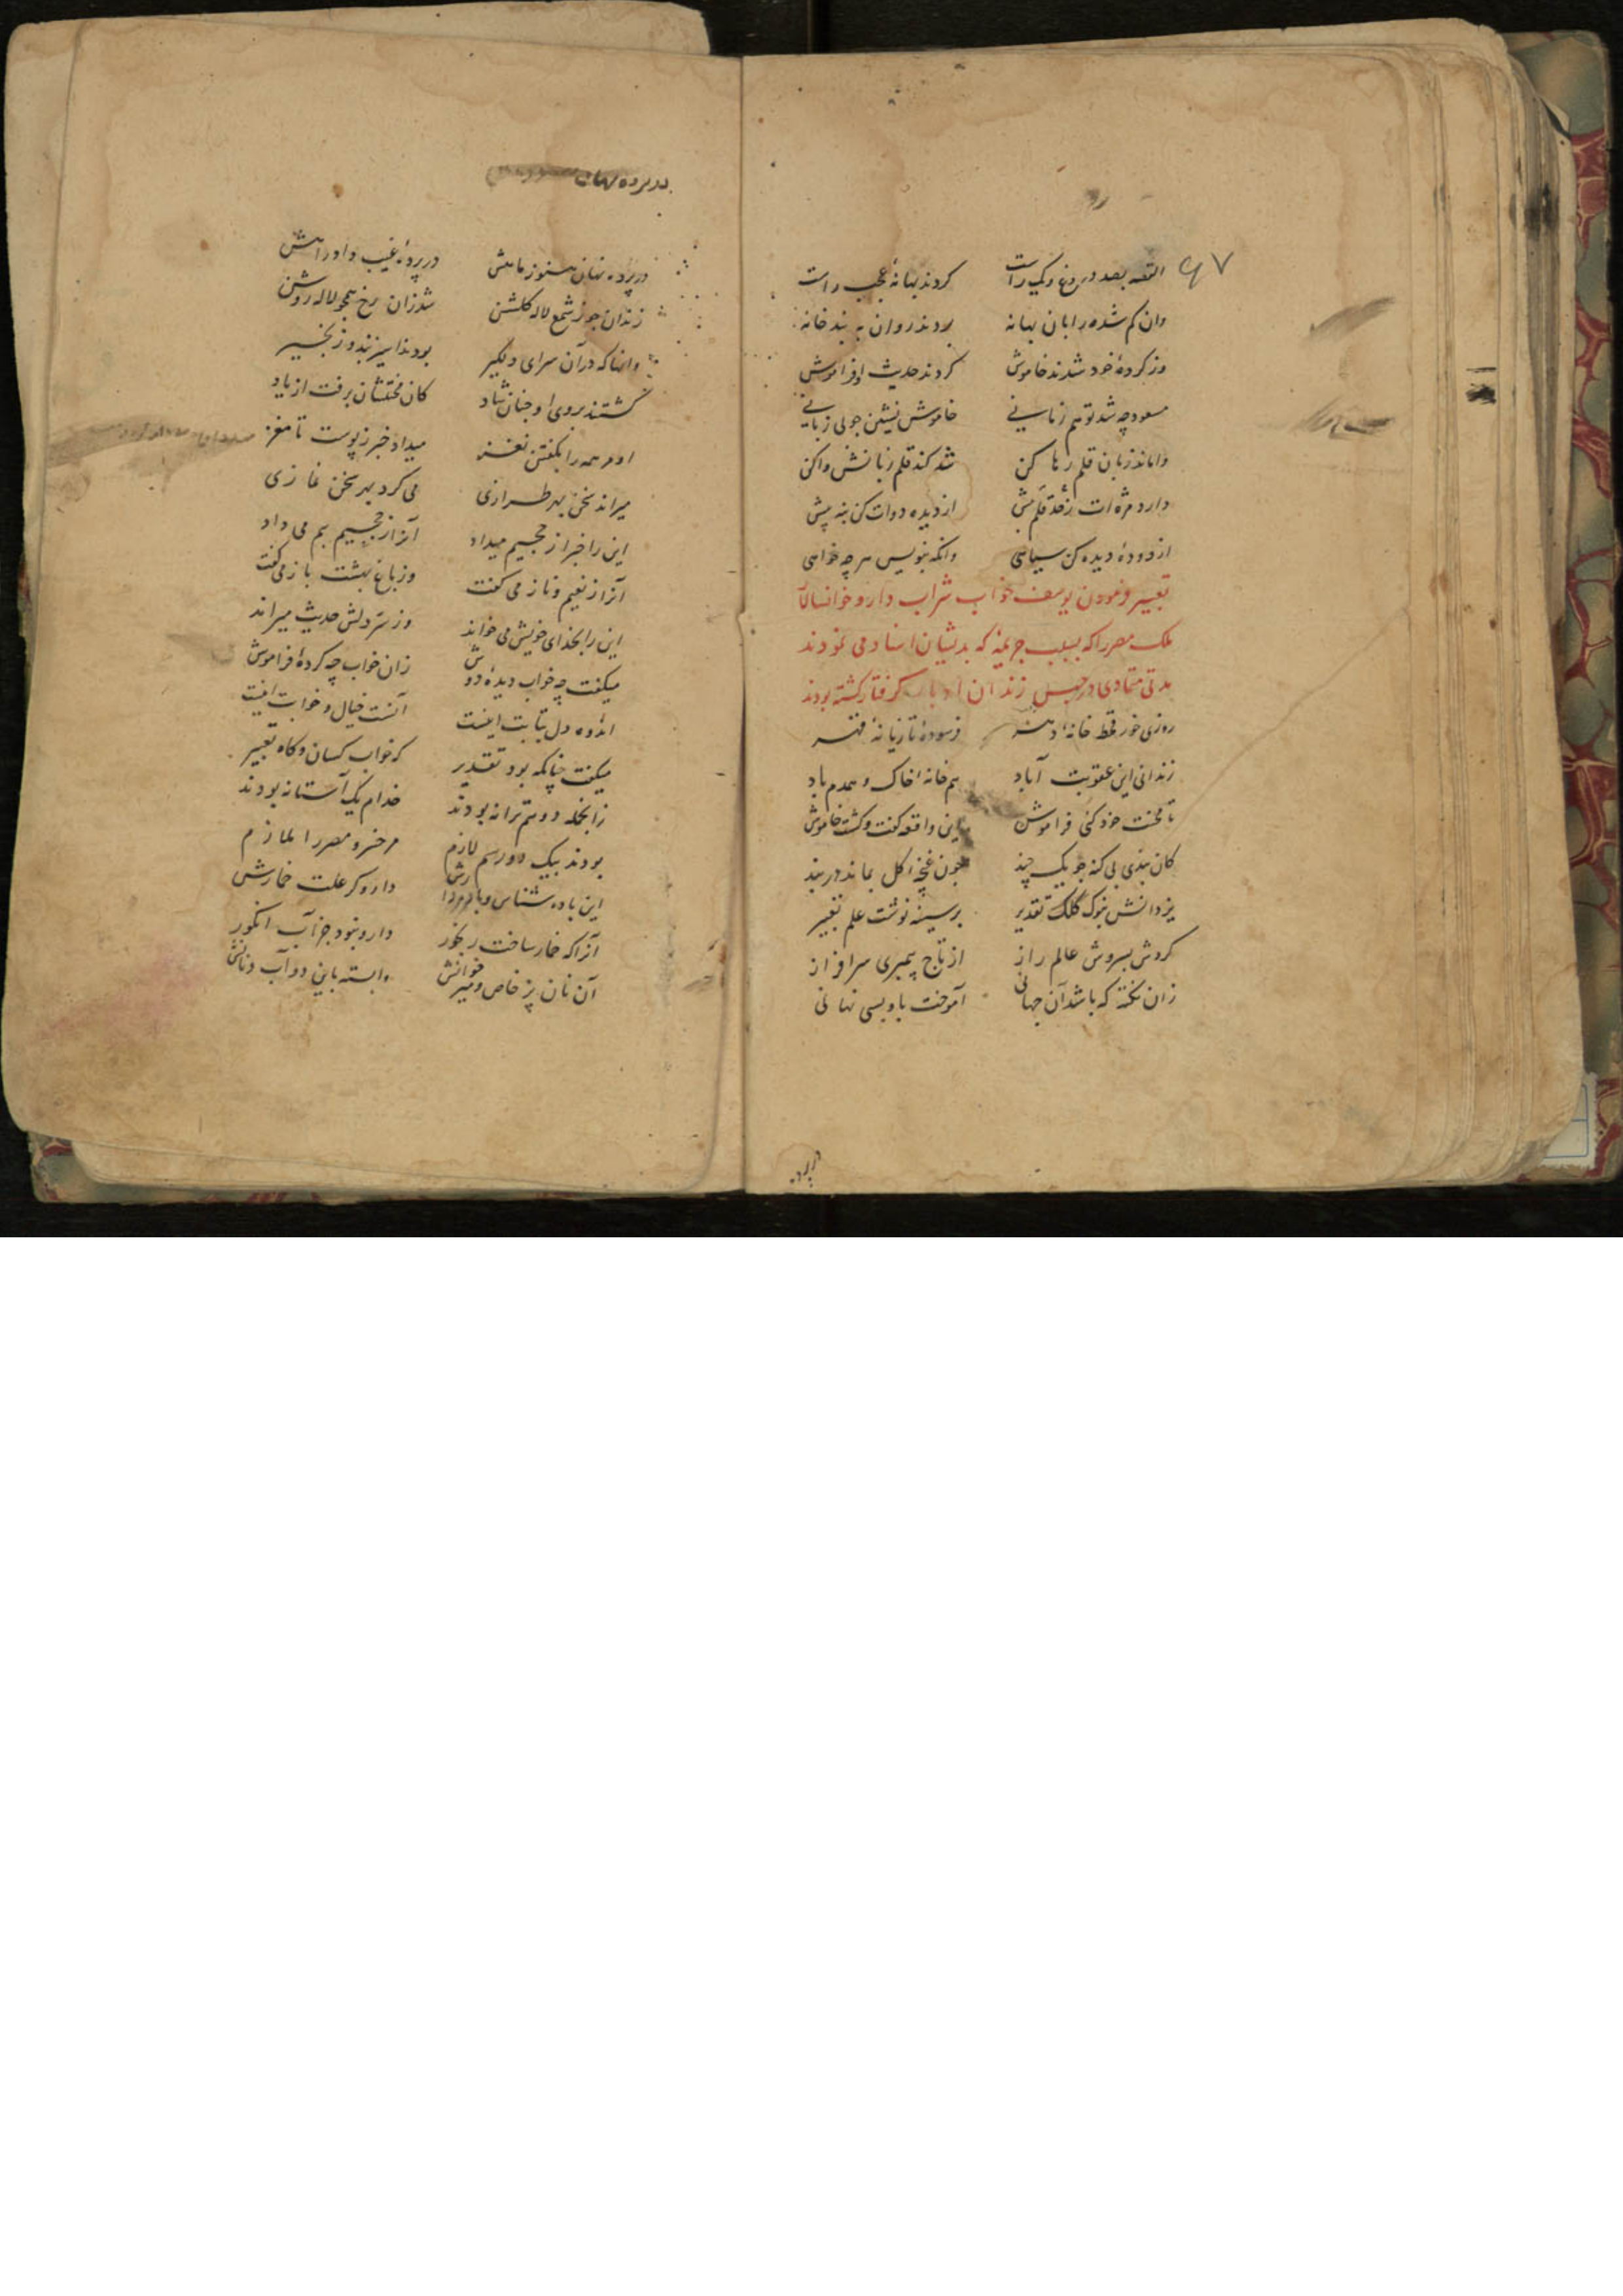 ۶۷
القصه بصد دروغ و یک راست کردند بهانهٔ عجب راست
وان کم شده را بان بهانه بردند روان به بند خانه
وز کردهٔ خود شدند خاموش کردند حدیث او فراموش
مسعود چه شد تو هم زبانی خاموش نشین چو بی زبانی
واماند زبان قلم رها کن شد کند قلم زبانش واکن
دارد مژه ات قلم پیش از دیده دوات کن بنه پیش
از دودهٔ دیده کن سیاهی وانکه بنویس هر چه خواهی
تعبیر فرمودن یوسف خواب شراب دار و خوانسالار
ملک مصر را که بسبب جریمه که بدیشان اسناد می نمودند
مدتی متمادی در حبس زندان گرفتار کشته بودند
روزی خور قحط خانهٔ دهر فرسودهٔ تازیانهٔ قهر
زندانی این عقوبت آباد هم خانهٔ خاک و همدم باد
تا محنت خود کنی فراموش این واقعه کفت و کشت خاموش
کان بندی بی کنه چو یک چند چون غنچهٔ کل بماند در بند
یزدانش بنوک کلک تقدیر بر سینه نوشت علم تعبیر
کردش بسروش عالم راز از تاج پیمبری سرافراز
زان نکته که باشد آن جهانی آموخت باو بسی نهانی
در پرده
در پرده نهان
در پرده نهان هنوز در پردهٔ غیب و او
زندان چو ز شمع لاله کلشن شد زان رخ همچو لاله روشن
وانها که در آن سرای دلکیر بودند اسیر بند و زنجیر
کشتند بروی او چنان شاد کان محنتشان برفت از یاد
او هر همه را بکفتن نغز میداد خبر ز پوست تا مغز
میراند سخن بهر طرازی می کرد بهر سخن غازی
این را خبر از جحیم میداد آنرا ز جحیم بیم می داد
آنرا ز نعیم و ناز می کفت وز باغ بهشت باز می کفت
این را بخدای خویش می خواند وز سر دلش حدیث میراند
میکفت چه خواب دیدهٔ دوش زان خواب چه کردهٔ فراموش
اندوه دل بتابت اینست آنست خیال و خوابت اینست
میکفت چنانکه بود تقدیر که خواب کسان و کاه تعبیر
زانجمله دو هم ترانه بودند خدام یک آستانه بودند
بودند بیک دو رسم لازم مر خسرو مصر را ملازم
این باده شناس و دارو کر علت خمارش
آنرا که خمار ساخت رنجور دارو نبود جز آب انکور
آن نان پز خاص و میر خوانش وابسته باین دو آب و نانش